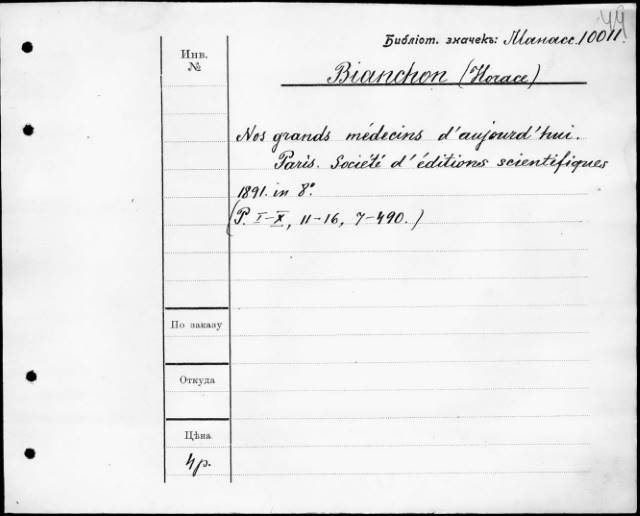 49
Библіот. значекъ: Манасс. 10011.
Инв.
№
Bianchon (Horace)
Nos grands médecins d'aujourd'hui.
Paris. Société d'éditions scientifiques
1891. in 8°.
(P. I-X, 11-16, 7-490.)
По заказу
Откуда
Цѣна
4 р.